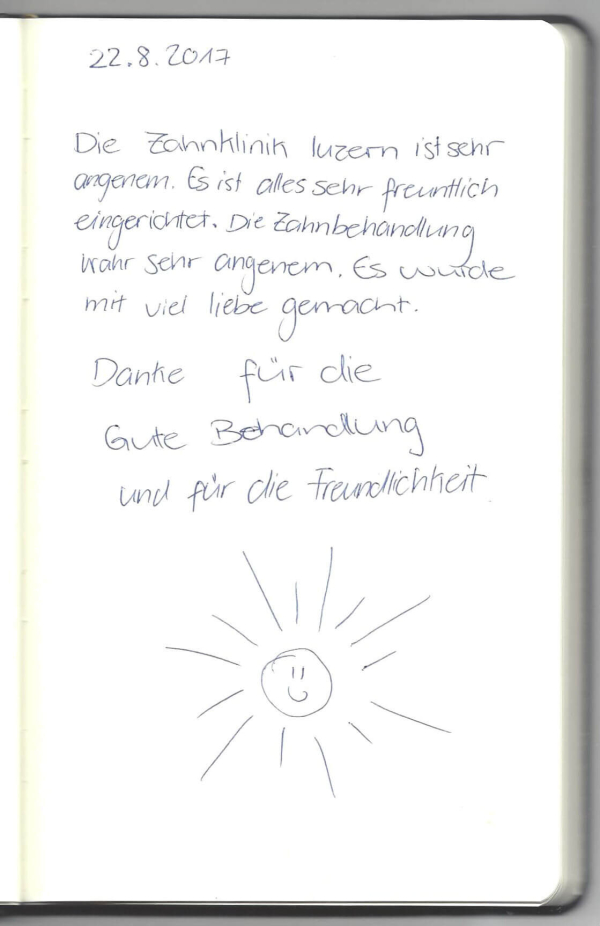 22.8.2017
Die Zahnklinik luzern ist sehr
angenem. Es ist alles sehr freuntlich
eingerichtet. Die Zahnbehandlung
wahr sehr angenem. Es wurde
mit viel liebe gemacht.
Danke für die
Gute Behandlung
und für die Freundlichkeit